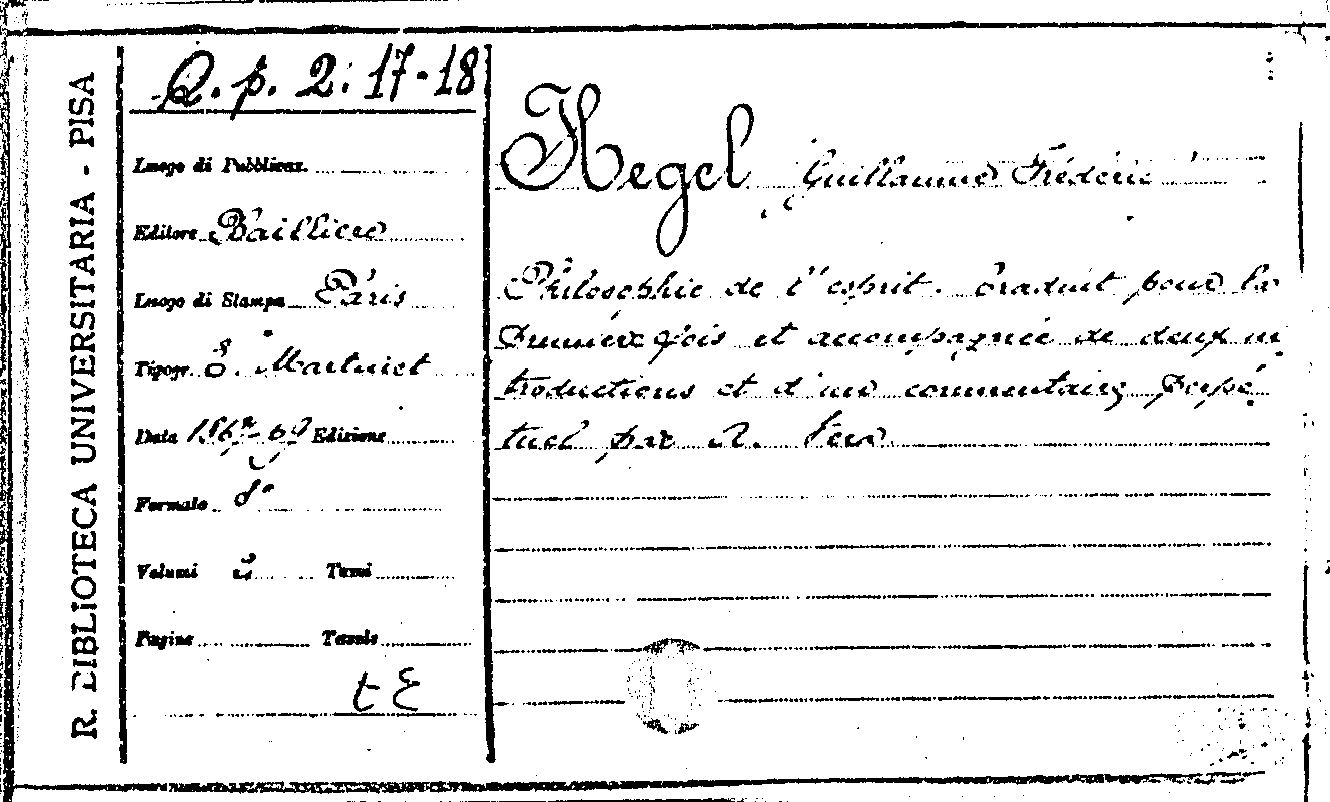 R. BIBLIOTECA UNIVERSITARIA - PISA
Q. p. 2. 17-18
Luogo di Pubblicaz.
Editore Baillière
Luogo di Stampa Paris
Tipogr. E. Martinet
Data 1867-69 Edizione
Formato 8°
Volumi 2 Tomi
Pagine Tavole
Hegel Guillaume Frédéric
Philosophie de l'esprit. Traduit pour la
première fois et accompagnée de deux in
troductions et d'un commentaire perpé
tuel par A. Vera